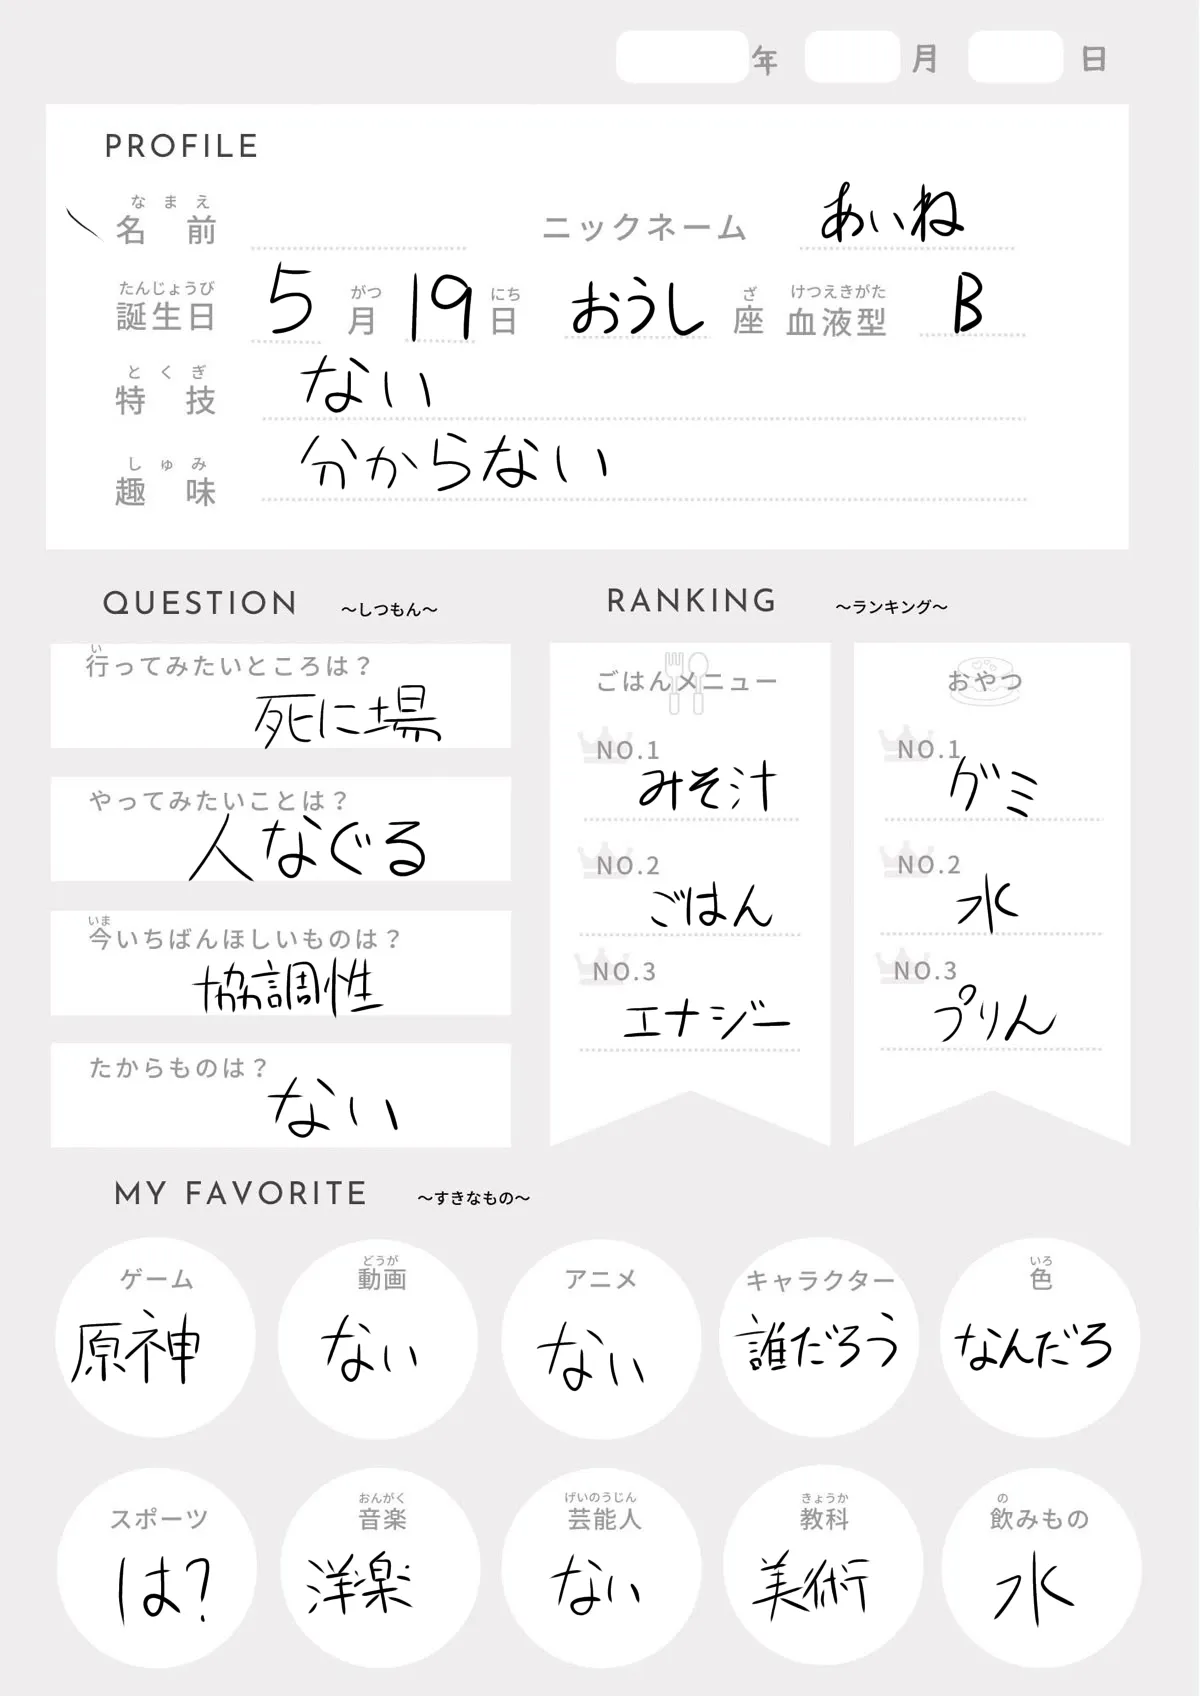 年 月 日
PROFILE
なまえ
名前 ニックネーム あいね
たんじょうび がつ にち ざ けつえきがた
誕生日 5 月 19 日 おうし 座 血液型 B
とくぎ
特技 ない
しゅみ
趣味 分からない
QUESTION ～しつもん～
い
行ってみたいところは？
死に場
やってみたいことは？
人なぐる
いま
今いちばんほしいものは？
協調性
たからものは？
ない
RANKING ～ランキング～
ごはんメニュー
NO.1
みそ汁
NO.2
ごはん
NO.3
エナジー
おやつ
NO.1
グミ
NO.2
水
NO.3
プリン
MY FAVORITE ～すきなもの～
ゲーム
原神
どうが
動画
ない
アニメ
ない
キャラクター
誰だろう
いろ
色
なんだろ
スポーツ
は？
おんがく
音楽
洋楽
げいのうじん
芸能人
ない
きょうか
教科
美術
の
飲みもの
水